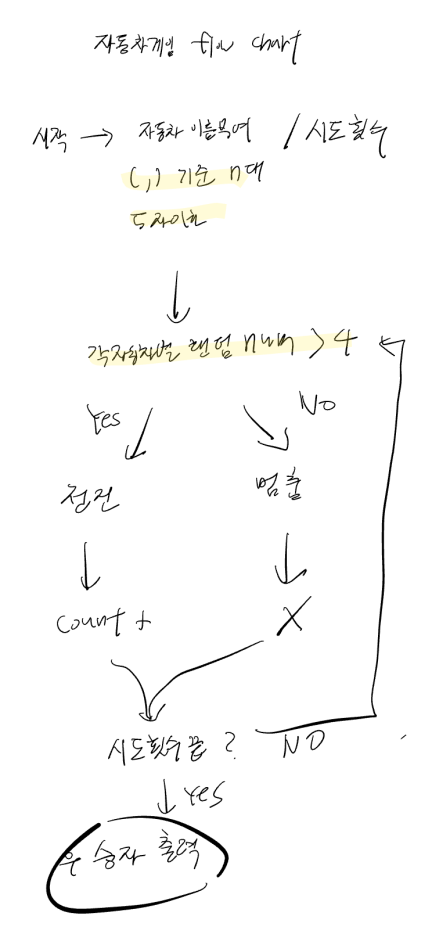 자동차게임 flow chart
시작 → 자동차 이름목여 / 시도횟수
(,) 기준 n대
5자이하
각자동차별 랜덤 num > 4
Yes
NO
전진
멈춤
count +
X
시도횟수끝 ?
NO
Yes
우승자 출력